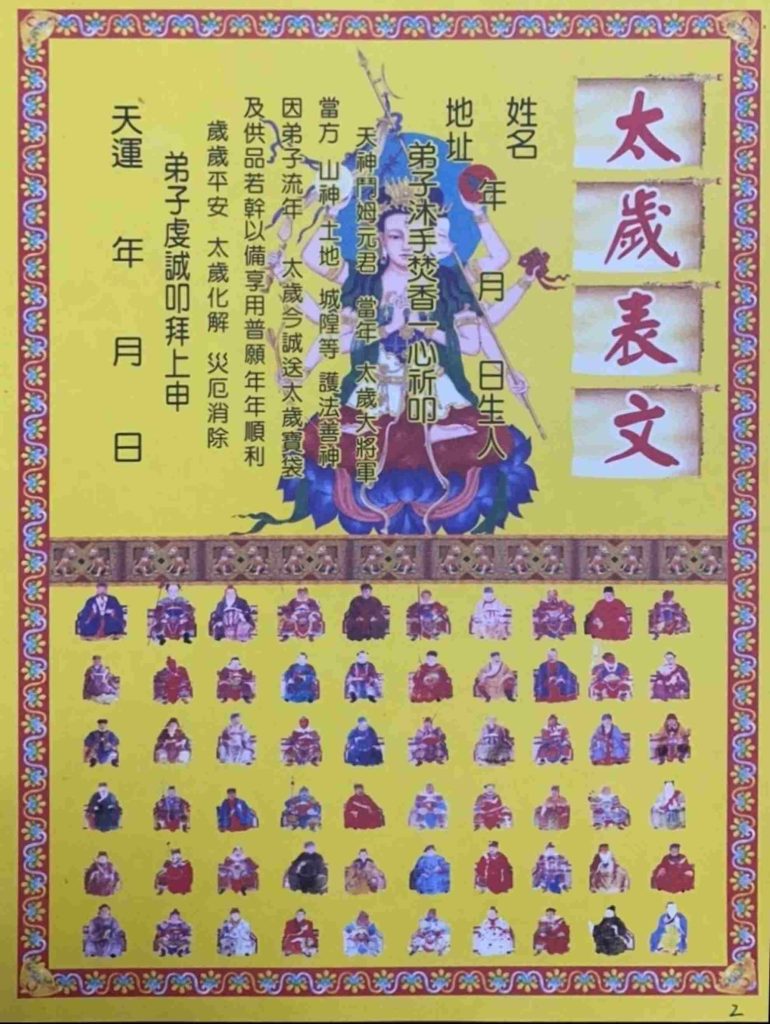 太歲表文
姓名
地址 年 月 日生人
弟子沐手焚香一心祈叩
天神鬥姆元君 當年 太歲大將軍
當方 山神 土地 城隍等 護法善神
因弟子流年 太歲今誠送太歲寶袋
及供品若幹以備享用普願年年順利
歲歲平安 太歲化解 災厄消除
弟子虔誠叩拜上申
天運 年 月 日
2